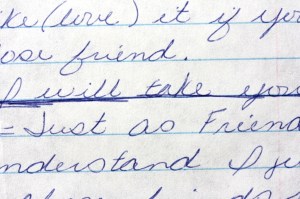 ke (love) it if you
ose friend.
I will take you
= Just as Friend
nderstand I ju